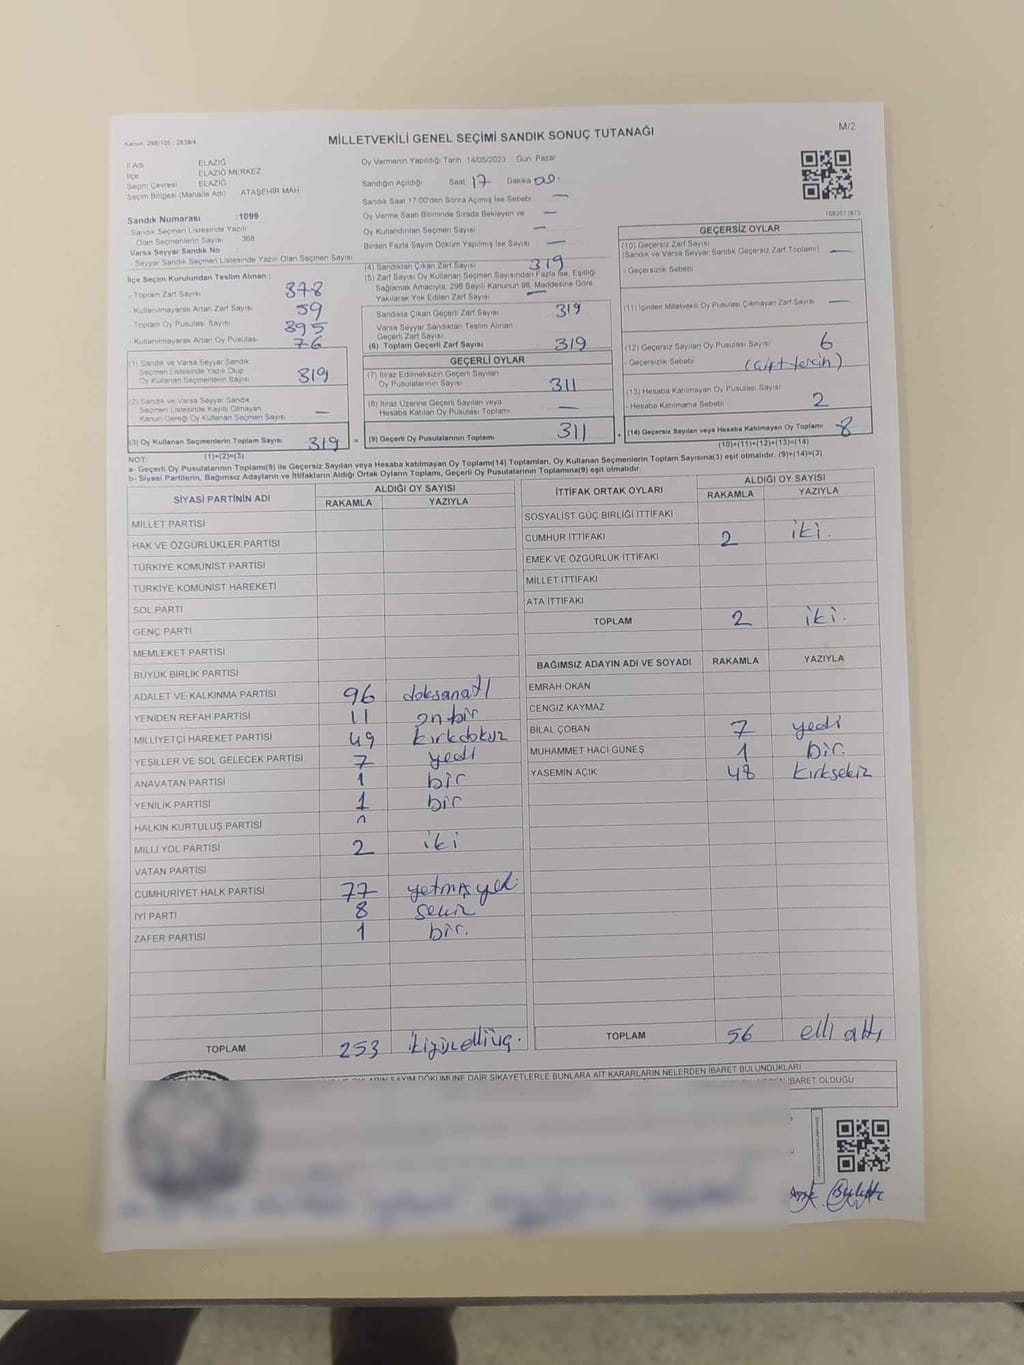 Kanun: 298/105 ; 2839/4
MİLLETVEKİLİ GENEL SEÇİMİ SANDIK SONUÇ TUTANAĞI
M/2
İl Adı ELAZIĞ
İlçe ELAZIĞ MERKEZ
Seçim Çevresi ELAZIĞ
Seçim Bölgesi (Mahalle Adı) ATAŞEHİR MAH
Sandık Numarası :1099
Sandık Seçmen Listesinde Yazılı
Olan Seçmenlerin Sayısı 368
Varsa Seyyar Sandık No :
- Seyyar Sandık Seçmen Listesinde Yazılı Olan Seçmen Sayısı
Oy Vermenin Yapıldığı Tarih :14/05/2023 Gün: Pazar
Sandığın Açıldığı Saat 17 Dakika 00.
Sandık Saat 17:00'den Sonra Açılmış İse Sebebi —
Oy Verme Saati Bitiminde Sırada Bekleyen ve —
Oy Kullandırılan Seçmen Sayısı —
Birden Fazla Sayım Döküm Yapılmış İse Sayısı —
İlçe Seçim Kurulundan Teslim Alınan :
- Toplam Zarf Sayısı 378
- Kullanılmayarak Artan Zarf Sayısı 59
- Toplam Oy Pusulası Sayısı 395
- Kullanılmayarak Artan Oy Pusulası 76
(1) Sandık ve Varsa Seyyar Sandık
Seçmen Listesinde Yazılı Olup
Oy Kullanan Seçmenlerin Sayısı 319
(2) Sandık ve Varsa Seyyar Sandık
Seçmen Listesinde Kayıtlı Olmayan
Kanun Gereği Oy Kullanan Seçmen Sayısı —
(3) Oy Kullanan Seçmenlerin Toplam Sayısı 319 =
(1)+(2)=(3)
(4) Sandıktan Çıkan Zarf Sayısı 319
(5) Zarf Sayısı Oy Kullanan Seçmen Sayısından Fazla İse, Eşitliği
Sağlamak Amacıyla; 298 Sayılı Kanunun 98. Maddesine Göre
Yakılarak Yok Edilen Zarf Sayısı —
Sandıkta Çıkan Geçerli Zarf Sayısı 319
Varsa Seyyar Sandıktan Teslim Alınan
Geçerli Zarf Sayısı
(6) Toplam Geçerli Zarf Sayısı 319
GEÇERLİ OYLAR
(7) İtiraz Edilmeksizin Geçerli Sayılan
Oy Pusulalarının Sayısı 311
(8) İtiraz Üzerine Geçerli Sayılan veya
Hesaba Katılan Oy Pusulası Toplamı —
(9) Geçerli Oy Pusulalarının Toplamı 311 +
GEÇERSİZ OYLAR
(10) Geçersiz Zarf Sayısı
(Sandık ve Varsa Seyyar Sandık Geçersiz Zarf Toplamı) —
- Geçersizlik Sebebi
(11) İçinden Milletvekili Oy Pusulası Çıkmayan Zarf Sayısı —
(12) Geçersiz Sayılan Oy Pusulası Sayısı 6
- Geçersizlik Sebebi (Çift tercih)
(13) Hesaba Katılmayan Oy Pusulası Sayısı
- Hesaba Katılmama Sebebi 2
(14) Geçersiz Sayılan veya Hesaba Katılmayan Oy Toplamı 8
(10)+(11)+(12)+(13)=(14)
NOT:
a- Geçerli Oy Pusulalarının Toplamı(9) ile Geçersiz Sayılan veya Hesaba katılmayan Oy Toplamı(14) Toplamları, Oy Kullanan Seçmenlerin Toplam Sayısına(3) eşit olmalıdır. (9)+(14)=(3)
b- Siyasi Partilerin, Bağımsız Adayların ve İttifakların Aldığı Ortak Oyların Toplamı, Geçerli Oy Pusulalarının Toplamına(9) eşit olmalıdır.
SİYASİ PARTİNİN ADI ALDIĞI OY SAYISI
RAKAMLA YAZIYLA
MİLLET PARTİSİ
HAK VE ÖZGÜRLÜKLER PARTİSİ
TÜRKİYE KOMÜNİST PARTİSİ
TÜRKİYE KOMÜNİST HAREKETİ
SOL PARTİ
GENÇ PARTİ
MEMLEKET PARTİSİ
BÜYÜK BİRLİK PARTİSİ
ADALET VE KALKINMA PARTİSİ 96 doksanatı
YENİDEN REFAH PARTİSİ 11 on bir
MİLLİYETÇİ HAREKET PARTİSİ 49 kırkdokuz
YEŞİLLER VE SOL GELECEK PARTİSİ 7 yedi
ANAVATAN PARTİSİ 1 bir
YENİLİK PARTİSİ 1 bir
HALKIN KURTULUŞ PARTİSİ
MİLLİ YOL PARTİSİ 2 iki
VATAN PARTİSİ
CUMHURİYET HALK PARTİSİ 77 yetmişyedi
İYİ PARTİ 8 sekiz
ZAFER PARTİSİ 1 bir.
TOPLAM 253 ikiyüzelliüç.
İTTİFAK ORTAK OYLARI ALDIĞI OY SAYISI
RAKAMLA YAZIYLA
SOSYALİST GÜÇ BİRLİĞİ İTTİFAKI
CUMHUR İTTİFAKI 2 iki.
EMEK VE ÖZGÜRLÜK İTTİFAKI
MİLLET İTTİFAKI
ATA İTTİFAKI
TOPLAM 2 iki.
BAĞIMSIZ ADAYIN ADI VE SOYADI RAKAMLA YAZIYLA
EMRAH OKAN
CENGİZ KAYMAZ
BİLAL ÇOBAN 7 yedi
MUHAMMET HACİ GÜNEŞ 1 bir.
YASEMİN AÇIK 48 kırksekiz
TOPLAM 56 elli altı
SAYIM DÖKÜMÜNE DAİR ŞİKAYETLERLE BUNLARA AİT KARARLARIN NELERDEN İBARET BULUNDUKLARI
İBARET OLDUĞU